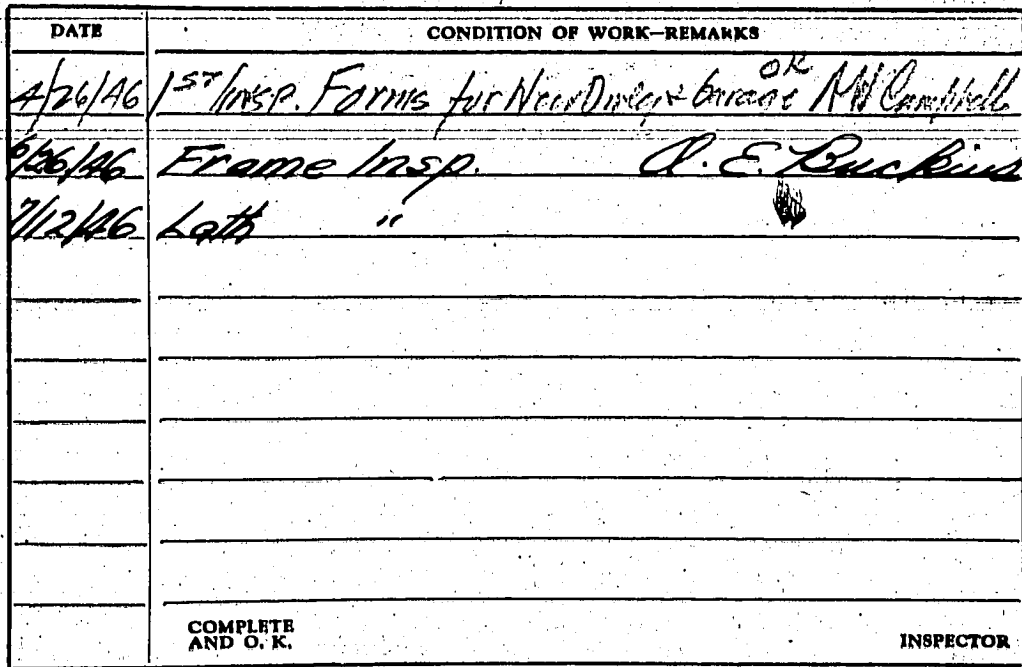 DATE CONDITION OF WORK—REMARKS
4/26/46 1ST Insp. Forms for New Dwlg & Garage OK Campbell
6/26/46 Frame Insp. A. E. Buckius
7/12/46 Lath "
COMPLETE AND O. K. INSPECTOR